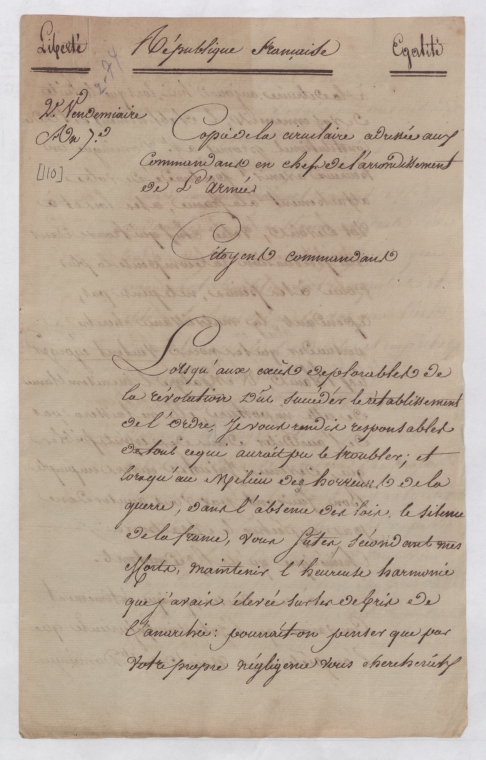 Liberté République française Egalité
2. Vendemiaire
An 7.e
[110]
Copie de la circulaire adressée aux
Commandans en chefs de l'arrondissement
de L'Armée
Citoyens commandans
Lorsqu'aux excès deplorables de
la révolution dus succéder le rétablissement
de l'Ordre, je vous rendis responsables
de tout ce qui aurait pu le troubler; et
lorsqu'au Milieu des horreurs de la
guerre, dans l'absence des lois, le silence
de la france, vous sutes, sécondant mes
efforts, maintenir l'heureuse harmonie
que j'avais élevée sur les débris de
l'anarchie: pourrait on penser que par
votre propre négligence vous chercheriés